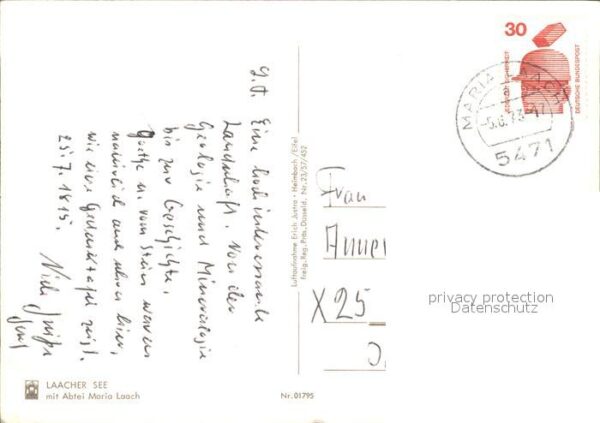 G. J. Eine hochinteressante
Landschaft. Von der
Geologie und Mineralogie
bis zur Geschichte.
Goethe u. vom Stein waren
natürlich auch schon hier,
wie eine Gedenktafel zeigt.
25.7.1815.
Viele
LAACHER SEE
mit Abtei Maria Laach
Nr. 01795
Luftaufnahme Erich Justra · Heimbach/Eifel
Freig. Reg. Präs. Düsseld. Nr. 23/57/452
30
DEUTSCHE BUNDESPOST
MARIA LAACH
-5.6.73-17
5471
Frau
X25
privacy protection
Datenschutz